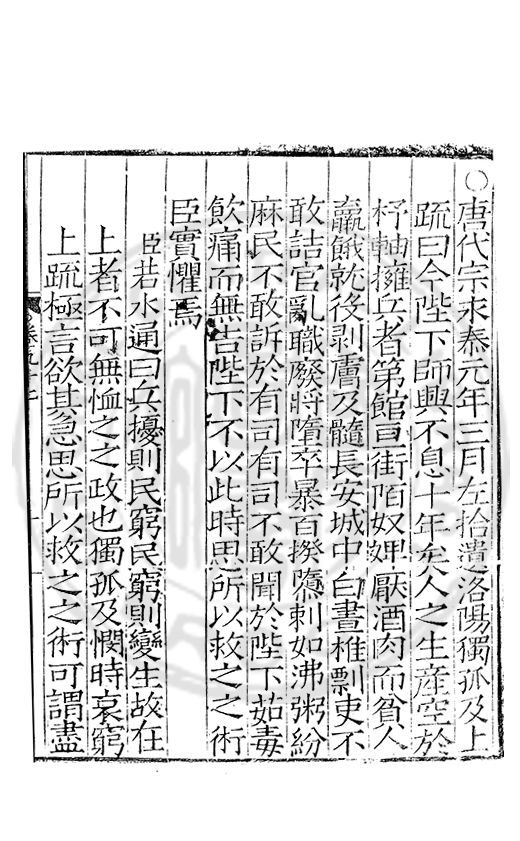 ○唐代宗永泰元年三月左拾遺洛陽獨孤及上
疏曰今陛下師興不息十年矣人之生產空於
杼軸擁兵者第館亘街陌奴婢厭酒肉而貧人
羸餓就役剥膚及髓長安城中白晝椎剽吏不
敢詰官亂職廢將惰卒暴百揆隳剌如沸粥紛
麻民不敢訴於有司有司不敢聞於陛下茹毒
飲痛而無告陛下不以此時思所以救之之術
臣實懼焉
臣若水通曰兵擾則民窮民窮則變生故在
上者不可無恤之之政也獨孤及憫時哀窮
上疏極言欲其急思所以救之之術可謂盡